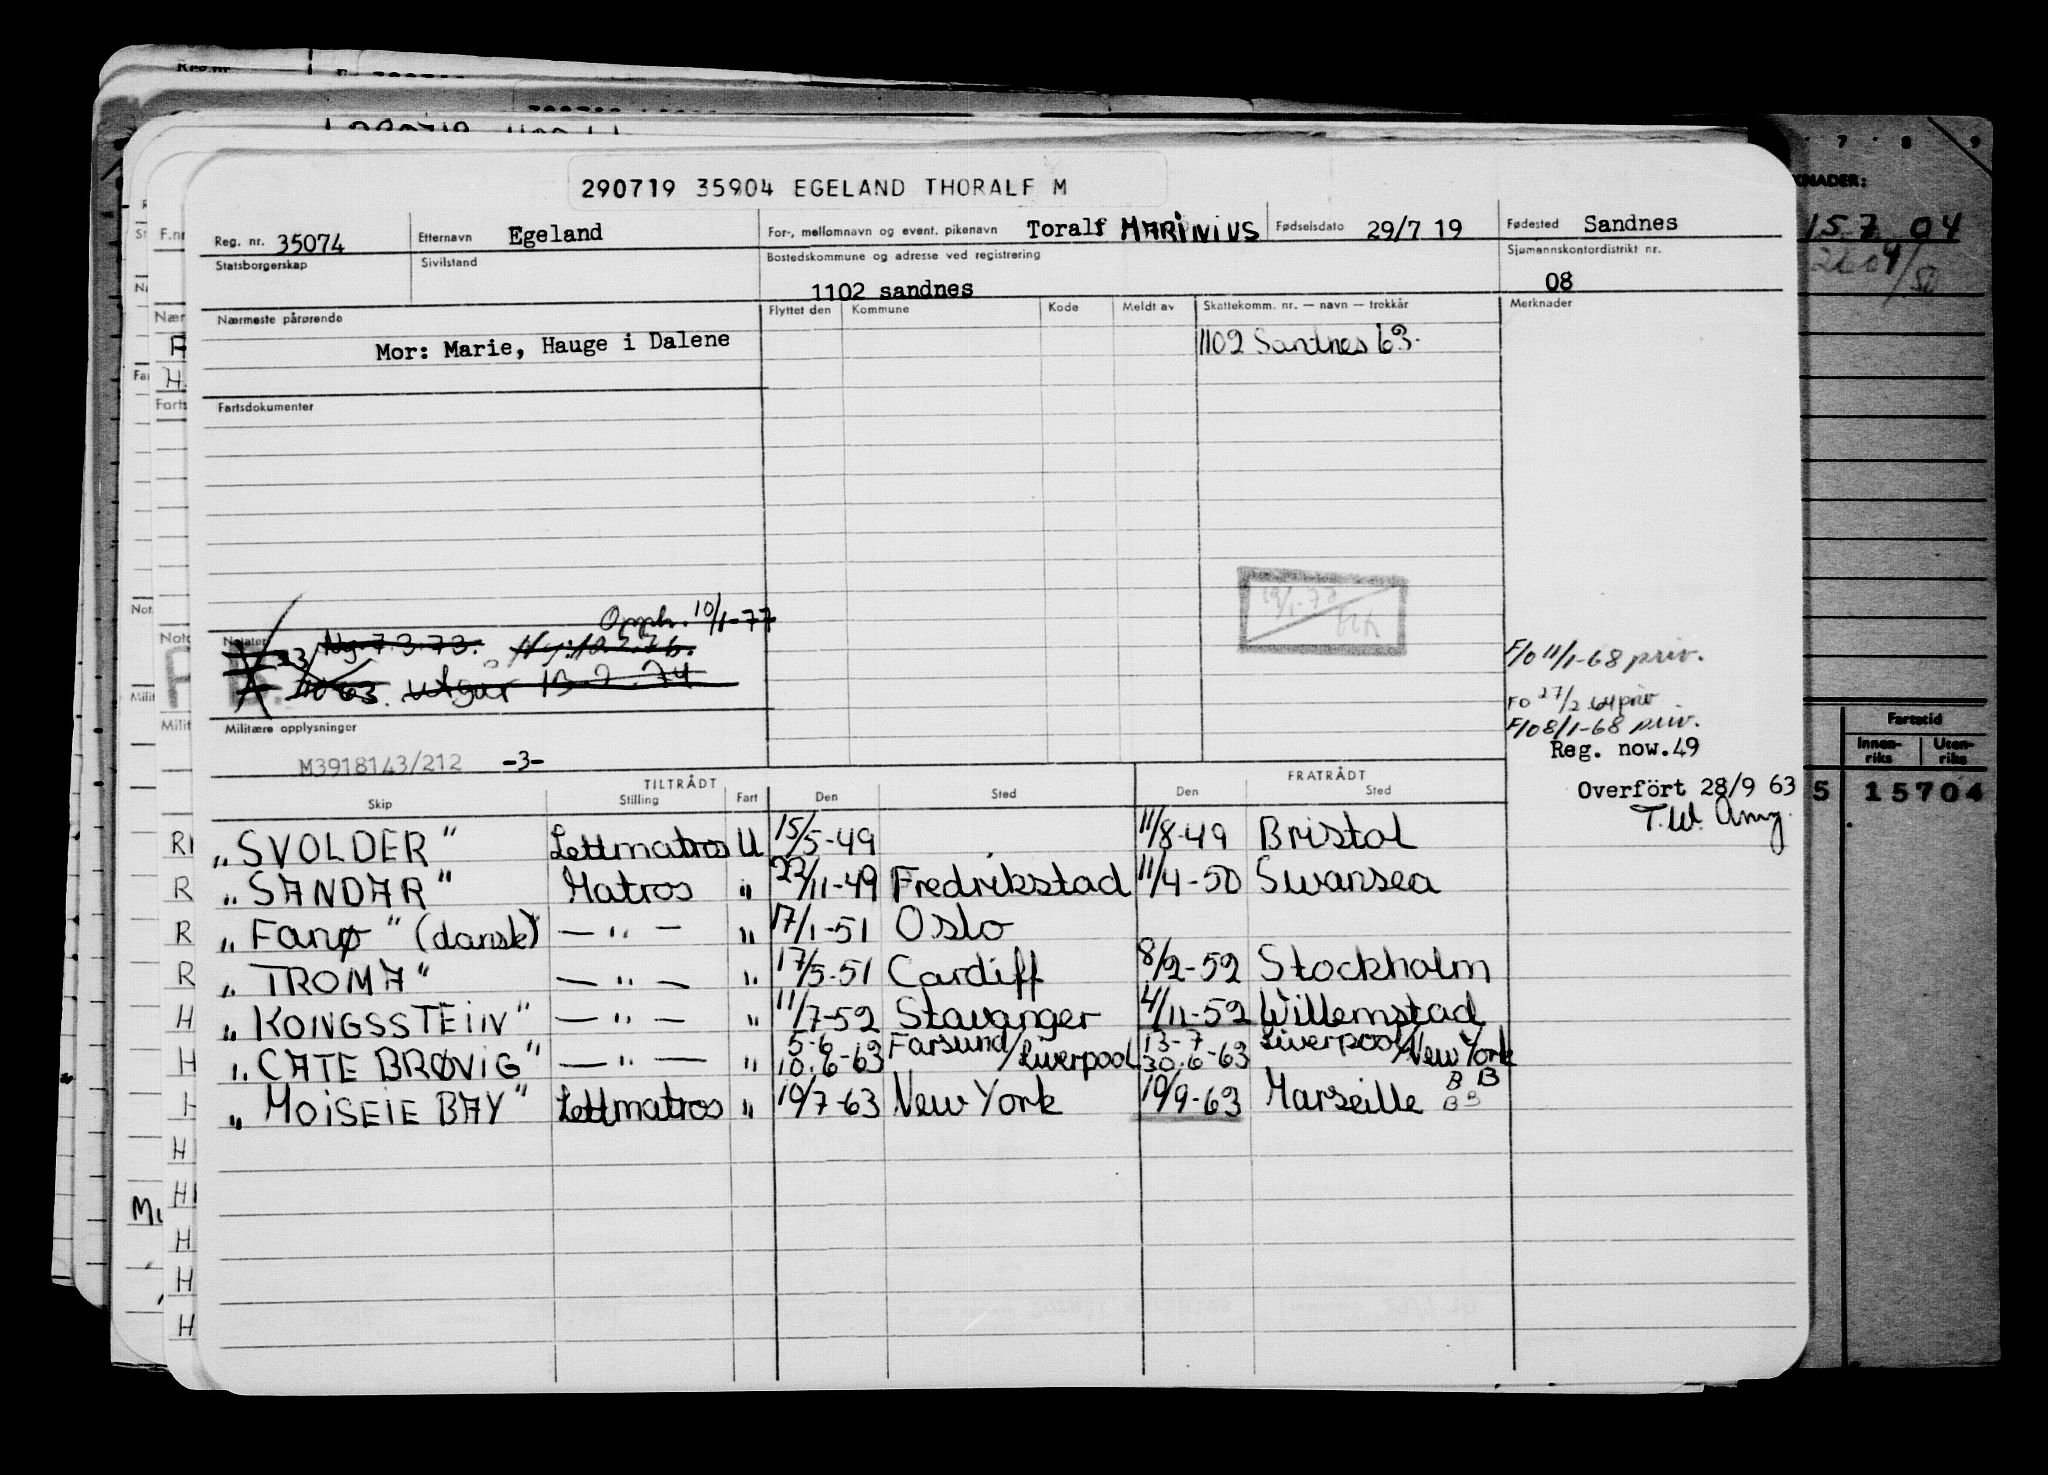 290719 35904 EGELAND THORALF M
Reg. nr. 35074 Etternavn Egeland For-, mellomnavn og event. pikenavn Toralf MARINIUS Fødselsdato 29/7 19 Fødested Sandnes
Statsborgerskap Sivilstand Bostedskommune og adresse ved registrering Sjømannskontordistrikt nr.
1102 sandnes 08
Nærmeste pårørende Flyttet den Kommune Kode Meldt av Skattekomm. nr. — navn — trekkår Merknader
Mor: Marie, Hauge i Dalene 1102 Sandnes 63.
Fartsdokumenter
Opph. 10/1-77
Notater Ny 7.3.73. Ny: 12.2.76.
63. utgår 13.2.74
F/o 11/1-68 priv.
FO 27/2 64 priv
F/o 8/1-68 priv.
Militære opplysninger Reg. now.49
M3918143/212 -3-
Overfört 28/9 63
T.W. Amg.
TILTRÅDT FRATRÅDT
Skip Stilling Fart Den Sted Den Sted
„SVOLDER" Lettmatros U 15/5-49 11/8-49 Bristol
„SANDAR" Matros " 22/11-49 Fredrikstad 11/4-50 Swansea
„Fanø" (dansk) — " — " 17/1-51 Oslo
„TROMA" — " — " 17/5-51 Cardiff 8/2-52 Stockholm
„KONGSSTEIN" — " — " 11/7-52 Stavanger 4/11-52 Willemstad
„CATE BRØVIG" — " — " 5-6 10.6-63 Farsund/Liverpool 13-7 30.6-63 Liverpool/New York
„MOISEIE BAY" Lettmatros " 19/7-63 New York 19/9-63 Marseille B B
B B
7 8 9
KNADER:
15.7.04
Fartstid
Innen-riks Uten-riks
5 15704